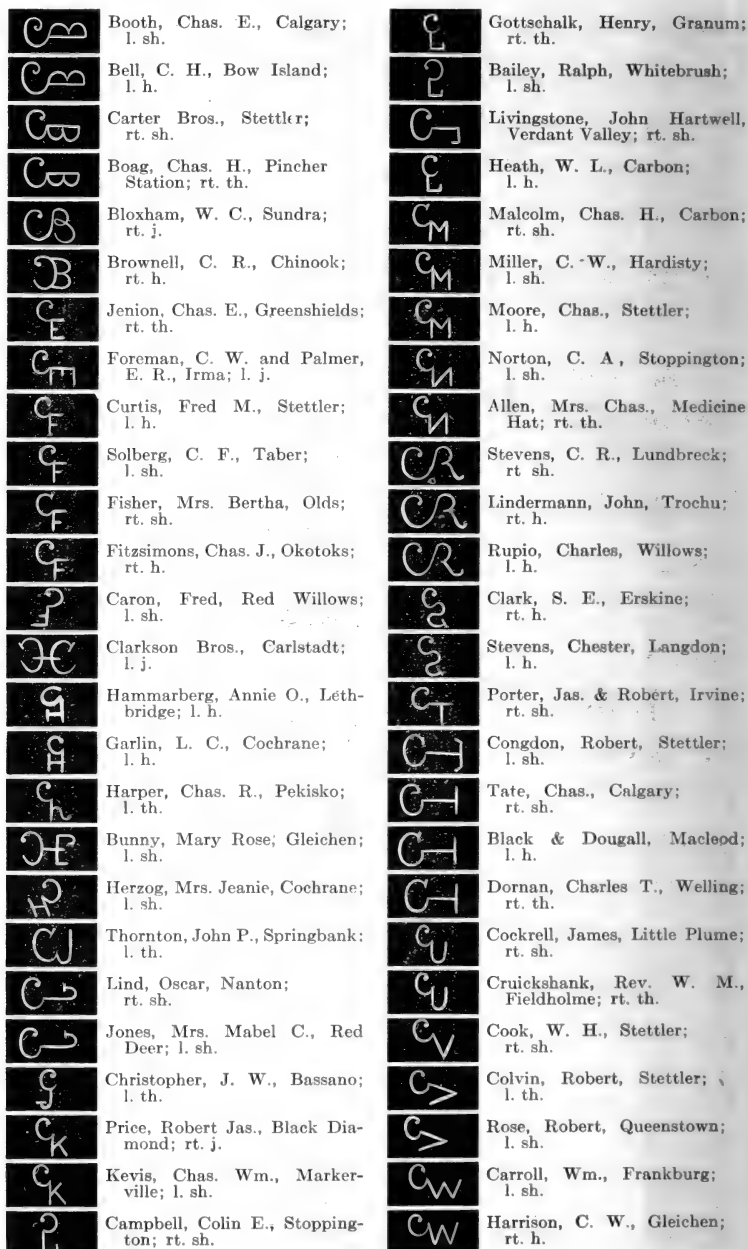 Booth, Chas. E., Calgary;
l. sh.
Bell, C. H., Bow Island;
l. h.
Carter Bros., Stettler;
rt. sh.
Boag, Chas. H., Pincher
Station; rt. th.
Bloxham, W. C., Sundra;
rt. j.
Brownell, C. R., Chinook;
rt. h.
Jenion, Chas. E., Greenshields;
rt. th.
Foreman, C. W. and Palmer,
E. R., Irma; l. j.
Curtis, Fred M., Stettler;
l. h.
Solberg, C. F., Taber;
l. sh.
Fisher, Mrs. Bertha, Olds;
rt. sh.
Fitzsimons, Chas. J., Okotoks;
rt. h.
Caron, Fred, Red Willows;
l. sh.
Clarkson Bros., Carlstadt;
l. j.
Hammarberg, Annie O., Leth-
bridge; l. h.
Garlin, L. C., Cochrane;
l. h.
Harper, Chas. R., Pekisko;
l. th.
Bunny, Mary Rose, Gleichen;
l. sh.
Herzog, Mrs. Jeanie, Cochrane;
l. sh.
Thornton, John P., Springbank;
l. th.
Lind, Oscar, Nanton;
rt. sh.
Jones, Mrs. Mabel C., Red
Deer; l. sh.
Christopher, J. W., Bassano;
l. th.
Price, Robert Jas., Black Dia-
mond; rt. j.
Kevis, Chas. Wm., Marker-
ville; l. sh.
Campbell, Colin E., Stopping-
ton; rt. sh.
Gottschalk, Henry, Granum;
rt. th.
Bailey, Ralph, Whitebrush;
l. sh.
Livingstone, John Hartwell,
Verdant Valley; rt. sh.
Heath, W. L., Carbon;
l. h.
Malcolm, Chas. H., Carbon;
rt. sh.
Miller, C. W., Hardisty;
l. sh.
Moore, Chas., Stettler;
l. h.
Norton, C. A, Stoppington;
l. sh.
Allen, Mrs. Chas., Medicine
Hat; rt. th.
Stevens, C. R., Lundbreck;
rt sh.
Lindermann, John, Trochu;
rt. h.
Rupio, Charles, Willows;
l. h.
Clark, S. E., Erskine;
rt. h.
Stevens, Chester, Langdon;
l. h.
Porter, Jas. & Robert, Irvine;
rt. sh.
Congdon, Robert, Stettler;
l. sh.
Tate, Chas., Calgary;
rt. sh.
Black & Dougall, Macleod;
l. h.
Dornan, Charles T., Welling;
rt. th.
Cockrell, James, Little Plume;
rt. sh.
Cruickshank, Rev. W. M.,
Fieldholme; rt. th.
Cook, W. H., Stettler;
rt. sh.
Colvin, Robert, Stettler;
l. th.
Rose, Robert, Queenstown;
l. sh.
Carroll, Wm., Frankburg;
l. sh.
Harrison, C. W., Gleichen;
rt. h.